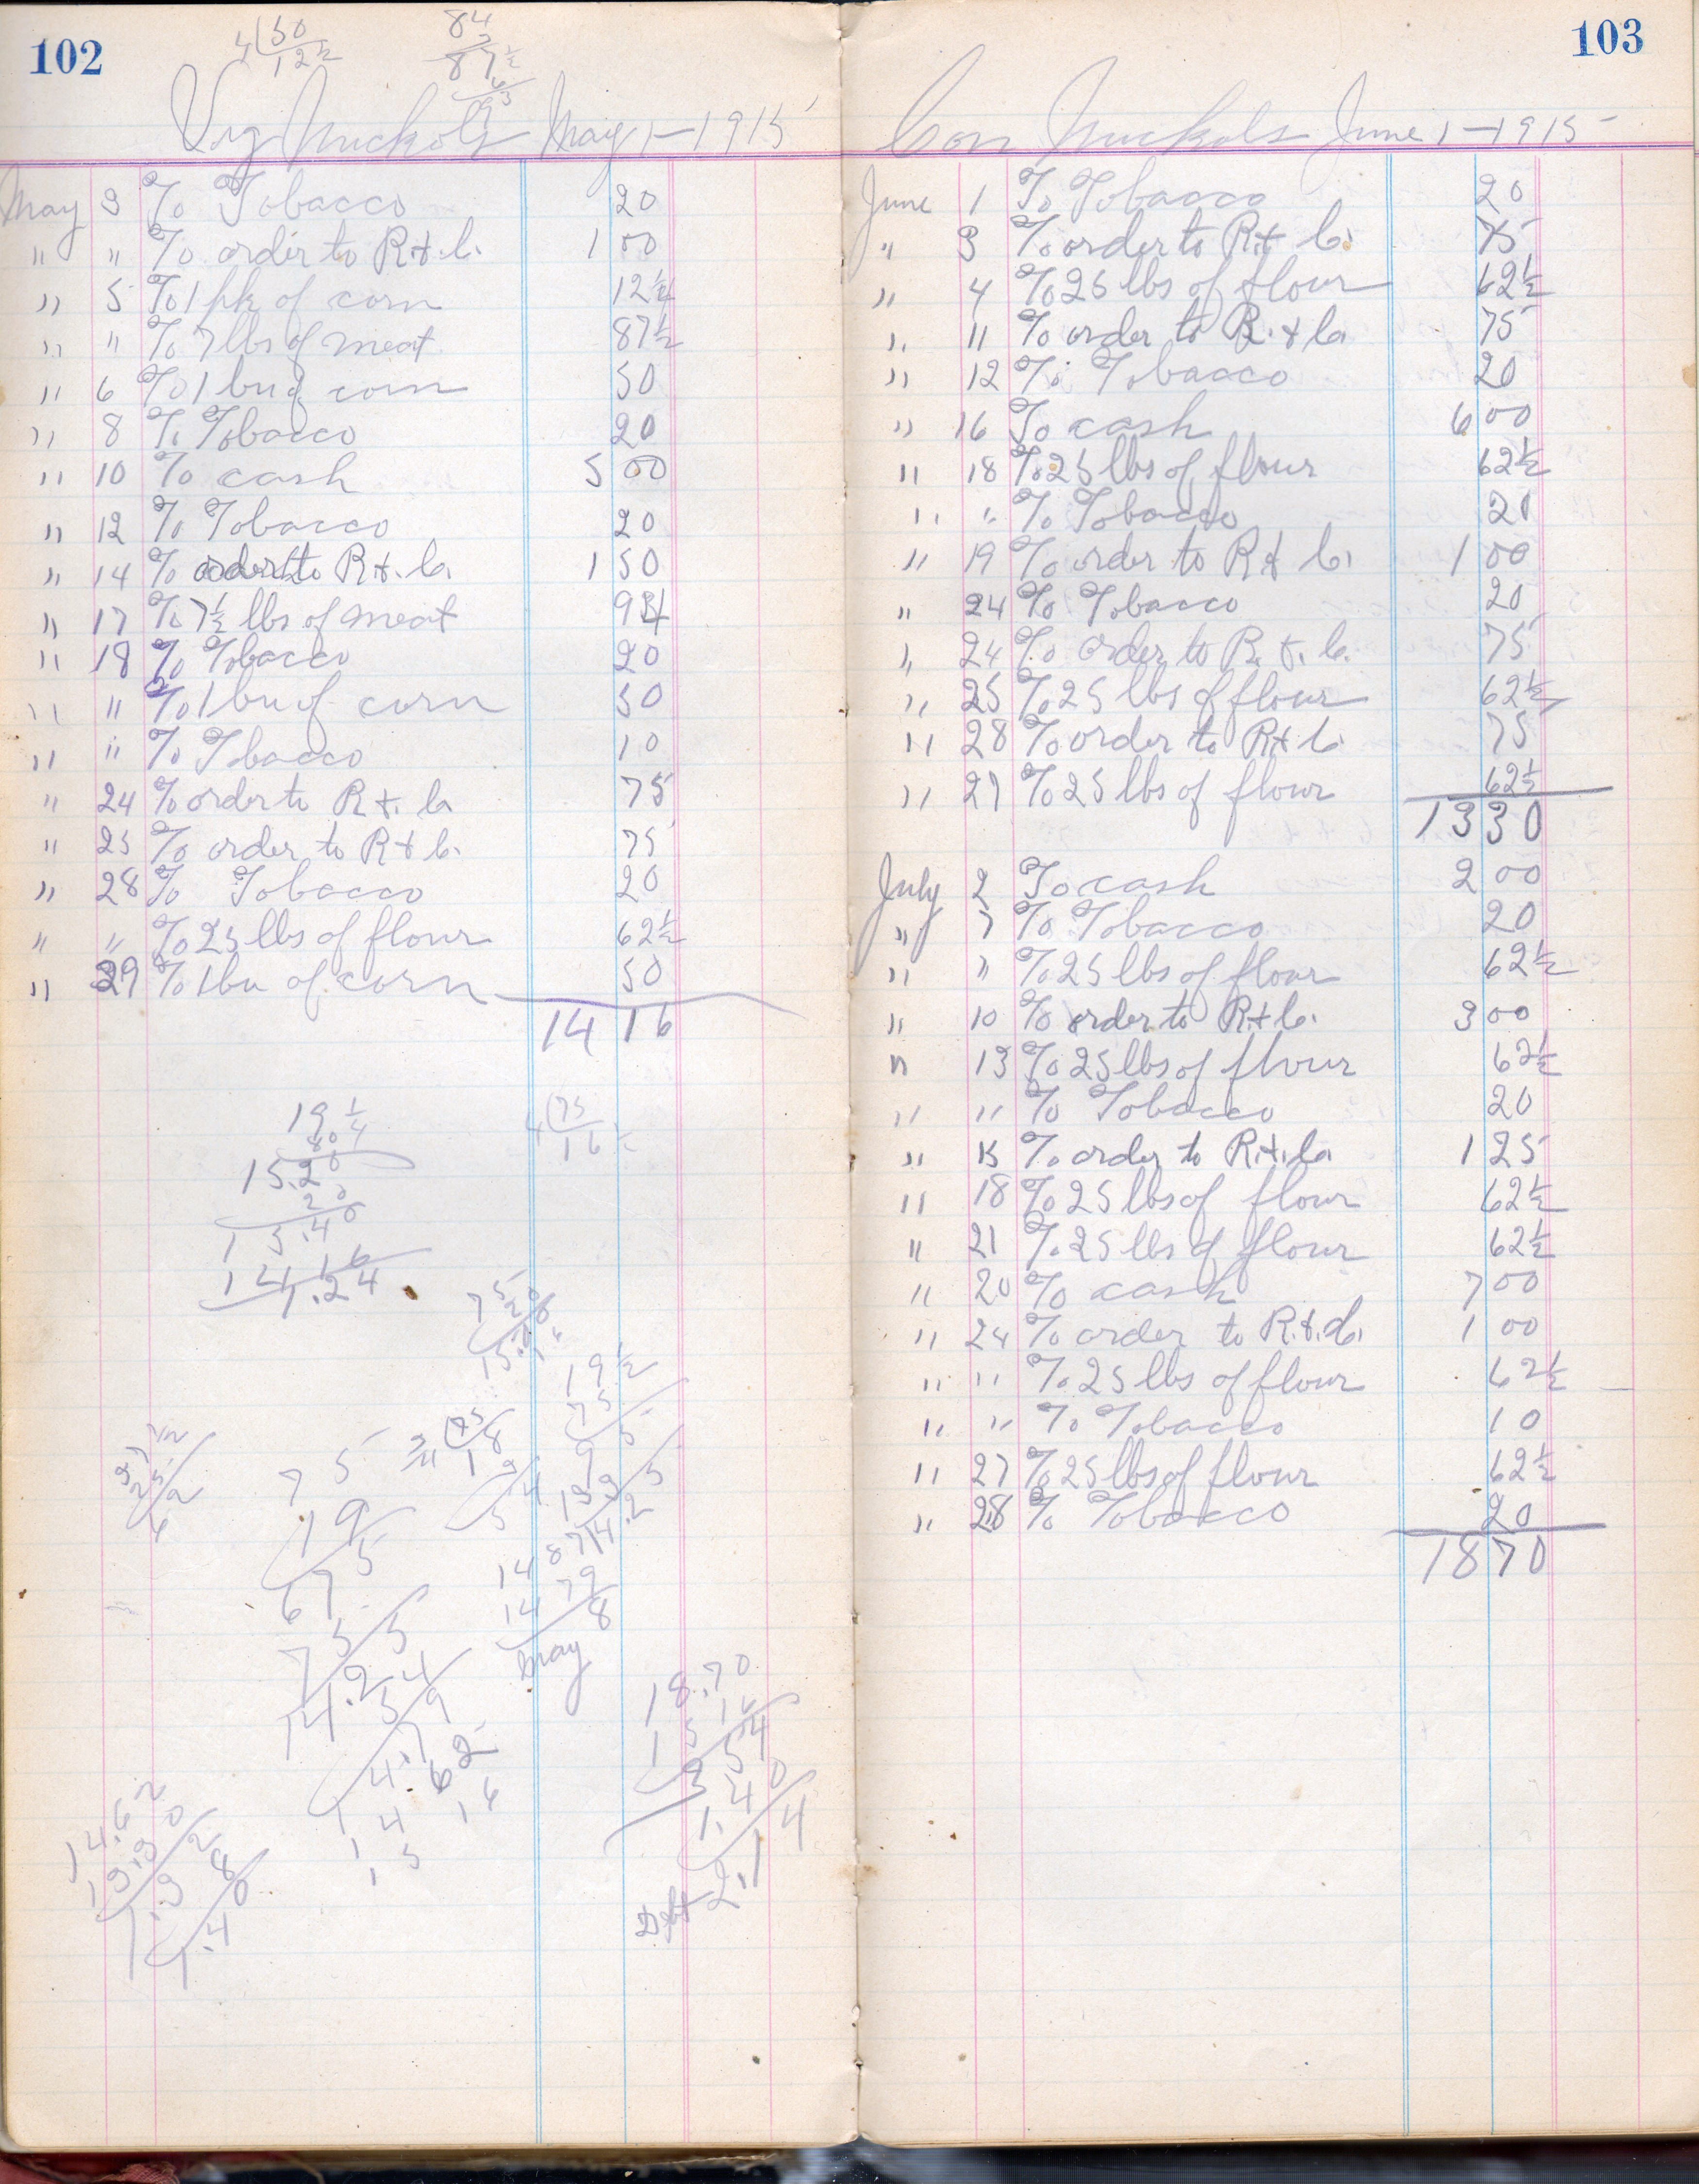 102
4(50
12½
84
3
87½
6
93
Virg Nuckols May 1—1915
May 3 To Tobacco 20
" " To order to R & C. 1 00
" 5 To 1 pk of corn 12½
" " To 7 lbs of meat 87½
" 6 To 1 bu of corn 50
" 8 To Tobacco 20
" 10 To cash 5 00
" 12 To Tobacco 20
" 14 To order to R & C. 1 50
" 17 To 7½ lbs of meat 94
" 18 To Tobacco 20
" " To 1 bu of corn 50
" " To Tobacco 10
" 24 To order to R & C. 75
" 25 To order to R & C. 75
" 28 To Tobacco 20
" " To 25 lbs of flour 62½
" 29 To 1 bu of corn 50
14 16
19¼
80
15.20
20
15.40
14 16
1.24
4(75
75
20
19½
75
75
19
5
67
75
14.25
14.79
14 87
14 79
8
May
14.62
18.70
15
1.40
Debt 2.14
103
Con Nuckols June 1—1915
June 1 To Tobacco 20
" 3 To order to R & C. 75
" 4 To 25 lbs of flour 62½
" 11 To order to R & Co. 75
" 12 To Tobacco 20
" 16 To cash 6 00
" 18 To 25 lbs of flour 62½
" " To Tobacco 20
" 19 To order to R & C. 1 00
" 24 To Tobacco 20
" 24 To order to R. & C. 75
" 25 To 25 lbs of flour 62½
" 28 To order to R & C. 75
" 29 To 25 lbs of flour 62½
13 30
July 2 To cash 2 00
" 7 To Tobacco 20
" " To 25 lbs of flour 62½
" 10 To order to R & C. 3 00
" 13 To 25 lbs of flour 62½
" " To Tobacco 20
" 15 To order to R. & C. 1 25
" 18 To 25 lbs of flour 62½
" 21 To 25 lbs of flour 62½
" 20 To cash 7 00
" 24 To order to R. & C. 1 00
" " To 25 lbs of flour 62½
" " To Tobacco 10
" 27 To 25 lbs of flour 62½
" 28 To Tobacco 20
18 70